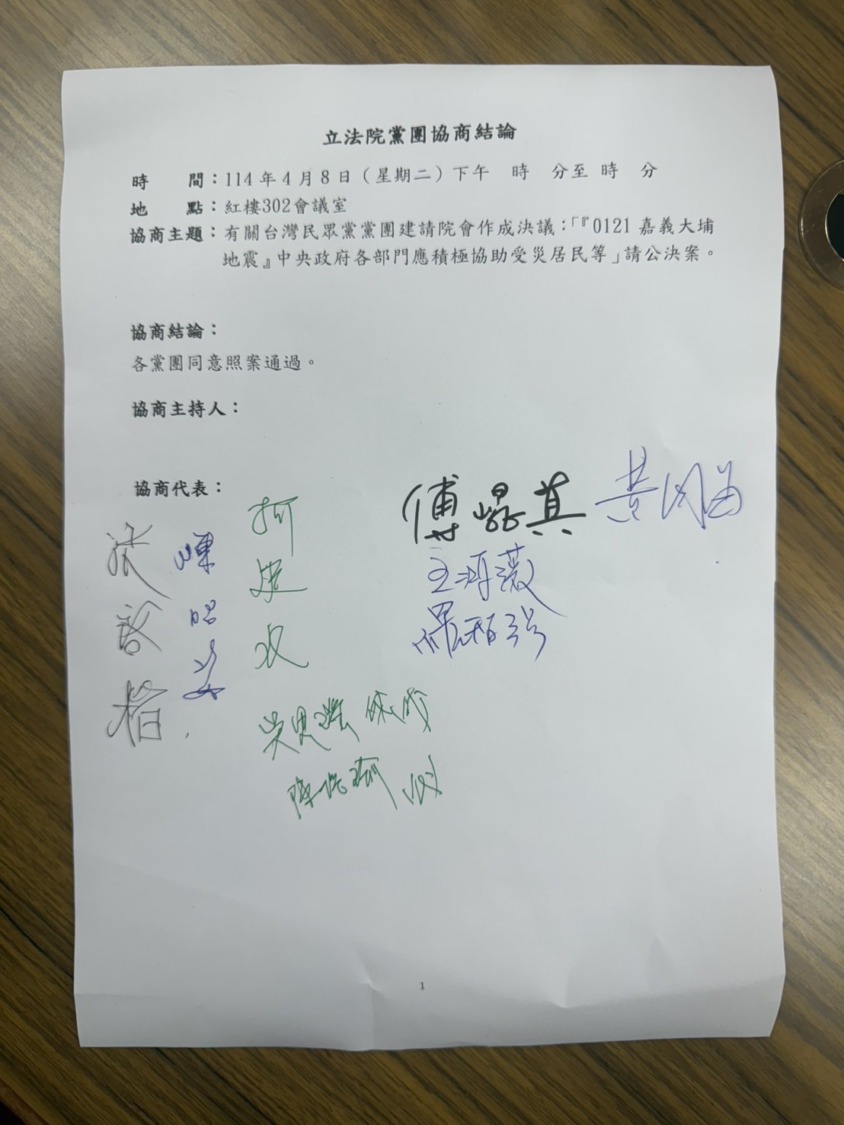 立法院黨團協商結論
時　　間：114年4月8日（星期二）下午　時　分至　時　分
地　　點：紅樓302會議室
協商主題：有關台灣民眾黨黨團建請院會作成決議：「『0121嘉義大埔
地震』中央政府各部門應積極協助受災居民等」請公決案。
協商結論：
各黨團同意照案通過。
協商主持人：
協商代表：
傅崐萁 黃國昌
王鴻薇
羅智強
張啓楷
陳昭姿
柯建銘
吳思瑤
陳培瑜
1